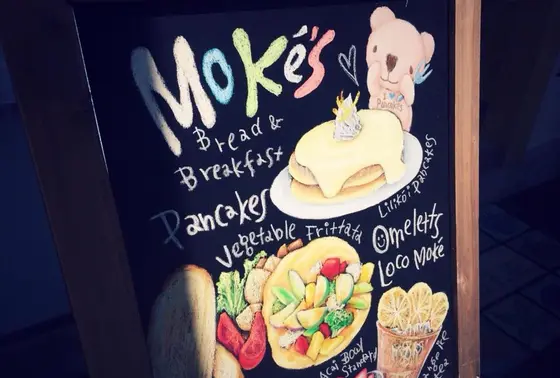 Moké's
Bread &
Breakfast
I ♡
Pancakes
Pancakes
Lilikoi Pancakes
Vegetable Frittata
Omeletts
Loco Moké
Acai Bowl
Standard